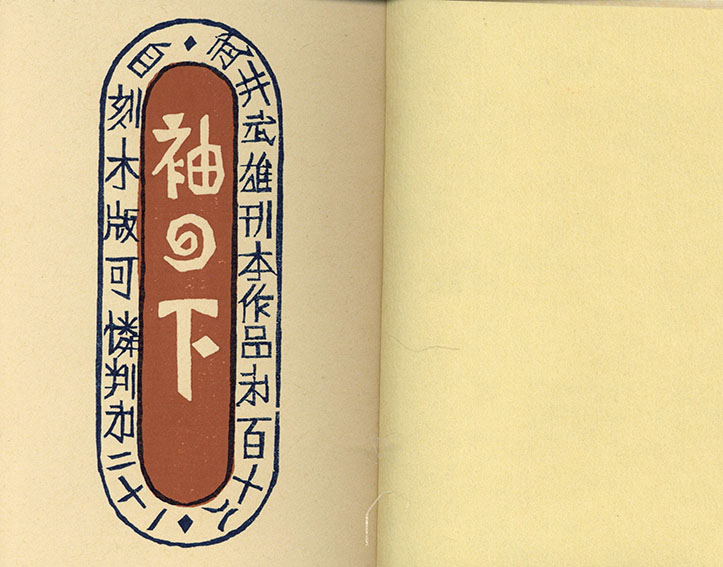 袖の下
武井武雄刊本作品㐧百十八
自刻木版可憐判㐧二十一